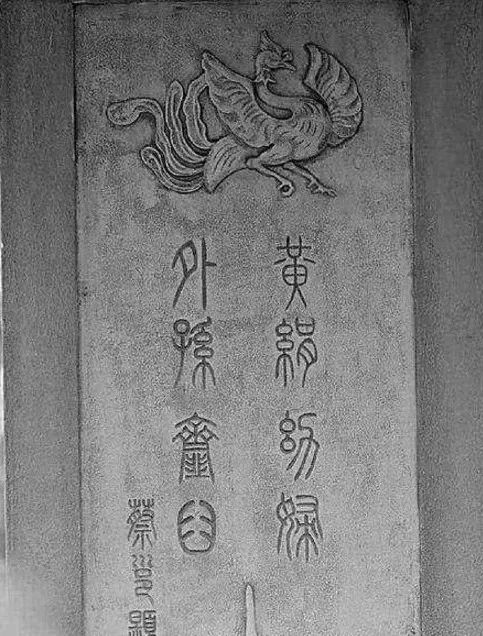 黃絹幼婦
外孫齏臼
蔡邕題